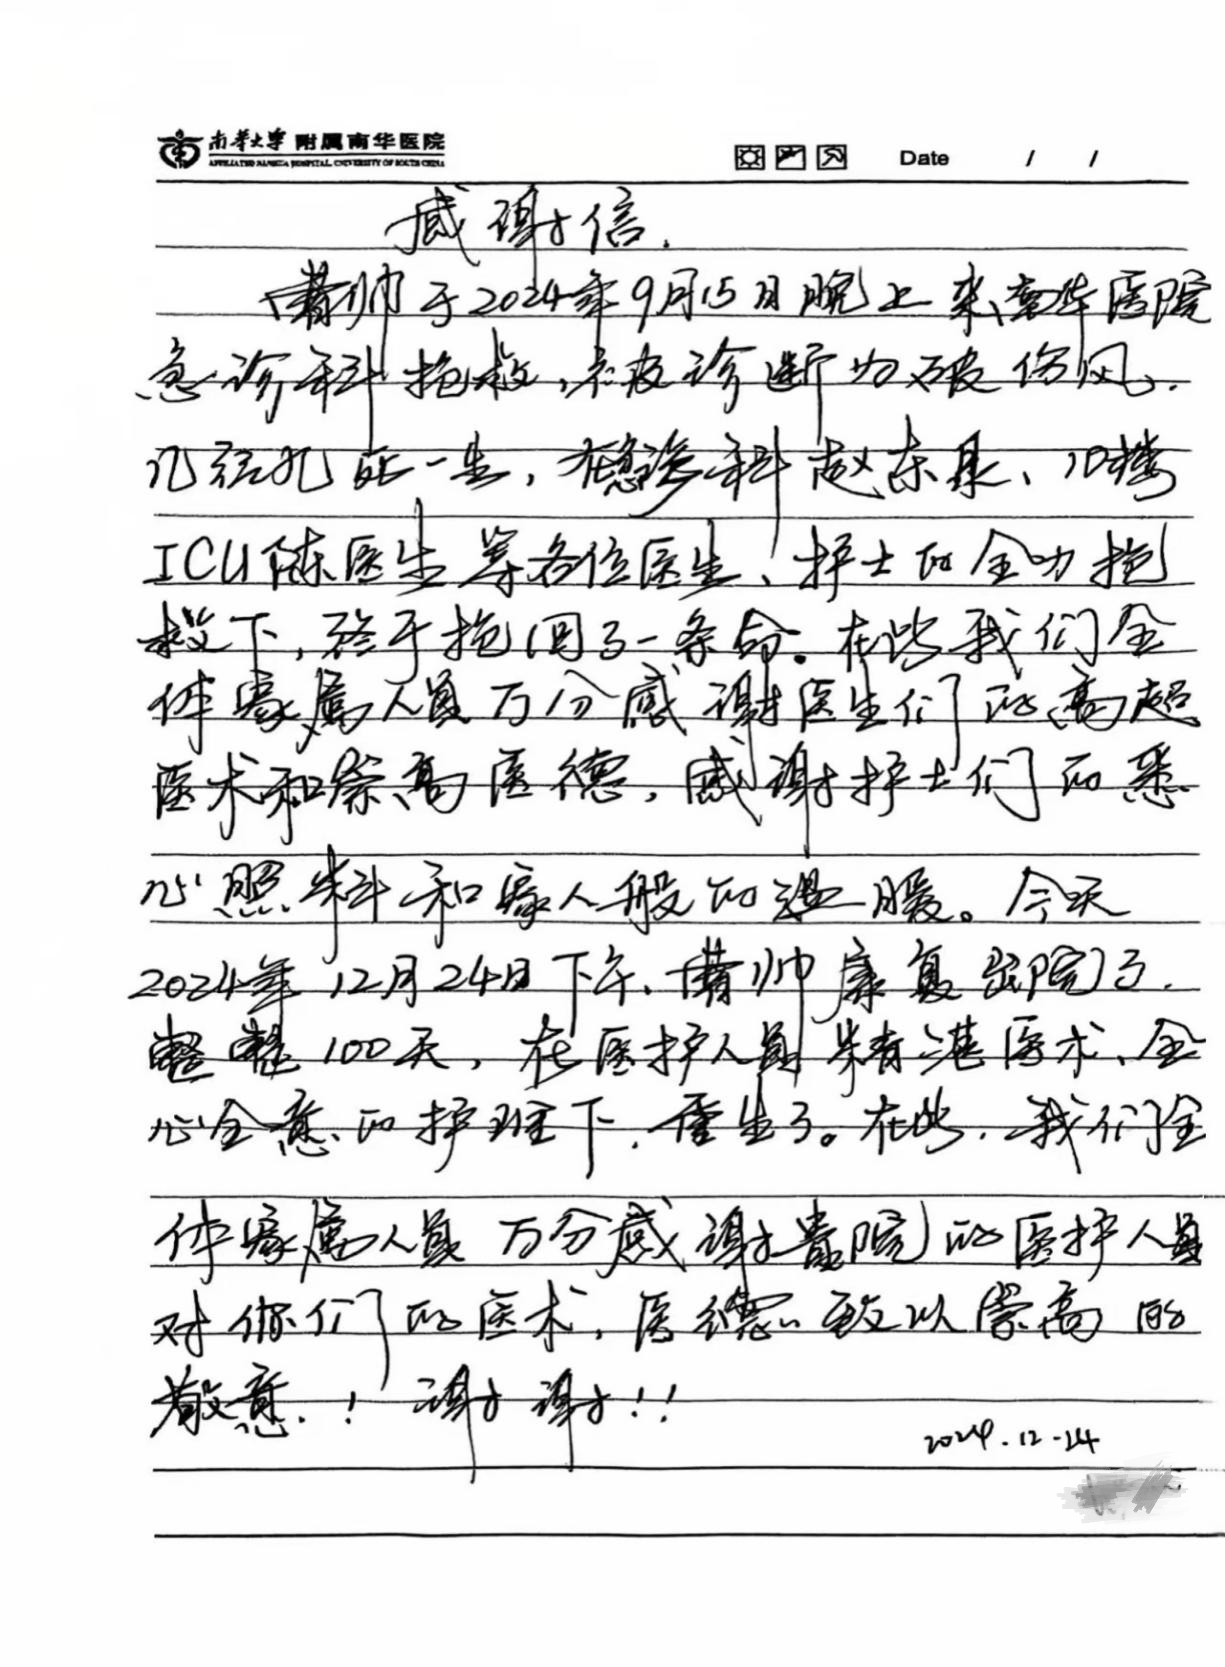 南华大学 附属南华医院
AFFILIATED NANHUA HOSPITAL, UNIVERSITY OF SOUTH CHINA
Date / /
感谢信.
帅于2024年9月15日晚上来南华医院
急诊科抢救,末及诊断为破伤风.
几经九死一生,在急诊科赵东泉、10楼
ICU陈医生等各位医生、护士的全力抢
救下,终于抢回了一条命。在此我们全
体家属人员万分感谢医生们的高超
医术和崇高医德,感谢护士们的悉
心照料和家人般的温暖。今天
2024年12月24日下午,帅康复出院了.
整整100天,在医护人员精湛医术、全
心全意的护理下,重生了。在此,我们全
体家属人员万分感谢贵院的医护人员
对你们的医术,医德致以崇高的
敬意!谢谢!!
2024.12.24